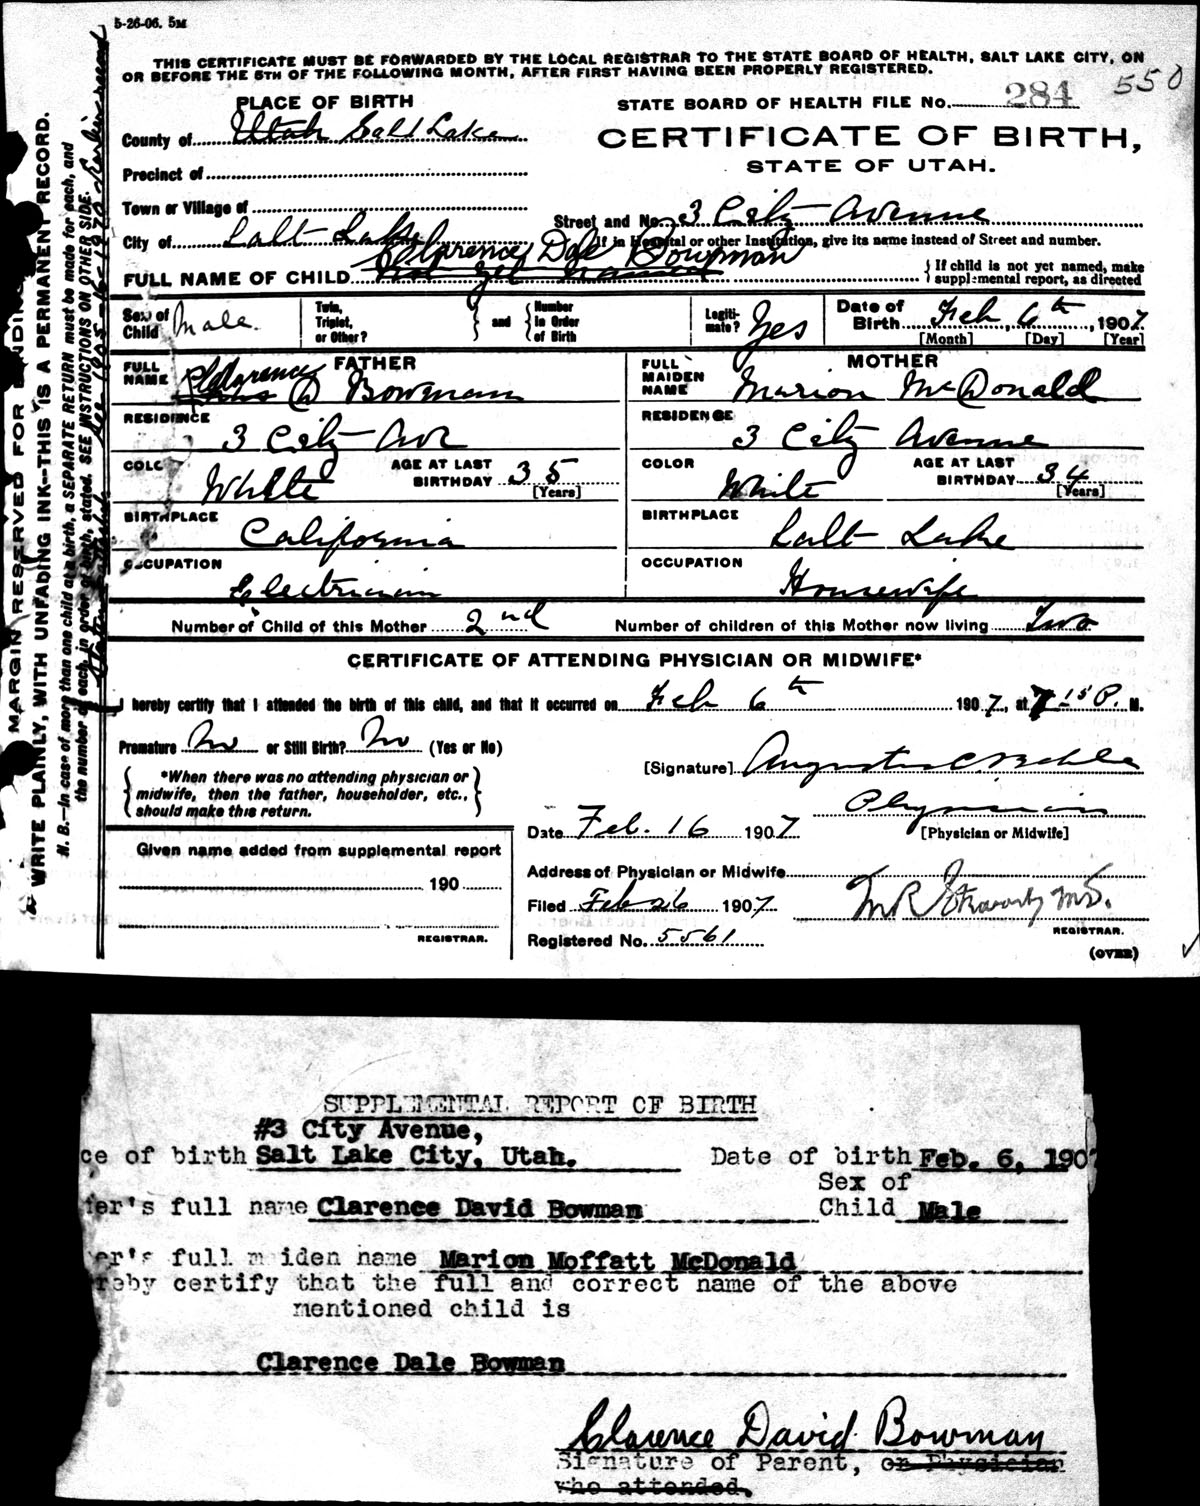 5-26-06. 5M
THIS CERTIFICATE MUST BE FORWARDED BY THE LOCAL REGISTRAR TO THE STATE BOARD OF HEALTH, SALT LAKE CITY, ON
OR BEFORE THE 5TH OF THE FOLLOWING MONTH, AFTER FIRST HAVING BEEN PROPERLY REGISTERED.
550
PLACE OF BIRTH
STATE BOARD OF HEALTH FILE No. 284
County of Utah Salt Lake
CERTIFICATE OF BIRTH,
STATE OF UTAH.
Precinct of
Town or Village of
Street and No. 3 City Avenue
City of Salt Lake
If in Hospital or other Institution, give its name instead of Street and number.
Clarence Dale Bowman
FULL NAME OF CHILD Not yet named
{ If child is not yet named, make
supplemental report, as directed
Sex of Child Male.
Twin, Triplet, or Other? } and { Number In Order of Birth
Legiti- mate? Yes
Date of Birth Feb, 6th, 1907.
[Month] [Day] [Year]
FATHER
MOTHER
FULL NAME Clarence D Bowman
FULL MAIDEN NAME Marion McDonald
RESIDENCE 3 City Ave
RESIDENCE 3 City Avenue
COLOR White AGE AT LAST BIRTHDAY 35 [Years]
COLOR White AGE AT LAST BIRTHDAY 34 [Years]
BIRTHPLACE California
BIRTHPLACE Salt Lake
OCCUPATION Electrician
OCCUPATION Housewife
Number of Child of this Mother 2nd Number of children of this Mother now living Two
CERTIFICATE OF ATTENDING PHYSICIAN OR MIDWIFE*
I hereby certify that I attended the birth of this child, and that it occurred on Feb 6th 1907, at 7 15 P. M.
Premature No or Still Birth? No (Yes or No)
{ *When there was no attending physician or
midwife, then the father, householder, etc.,
should make this return. }
[Signature]
Physician
[Physician or Midwife]
Date Feb. 16 1907
Given name added from supplemental report
190
REGISTRAR.
Address of Physician or Midwife
Filed Feb 26 1907
M.D.
REGISTRAR.
Registered No. 5561
(OVER)
MARGIN RESERVED FOR BINDING
WRITE PLAINLY, WITH UNFADING INK—THIS IS A PERMANENT RECORD.
N. B.—In case of more than one child at a birth, a SEPARATE RETURN must be made for each, and
the number of each, in order of birth, stated. SEE INSTRUCTIONS ON OTHER SIDE.
SUPPLEMENTAL REPORT OF BIRTH
#3 City Avenue,
ce of birth Salt Lake City, Utah. Date of birth Feb. 6, 1907
Sex of
her's full name Clarence David Bowman Child Male
er's full maiden name Marion Moffatt McDonald
reby certify that the full and correct name of the above
mentioned child is
Clarence Dale Bowman
Clarence David Bowman
Signature of Parent, or Physician
who attended.